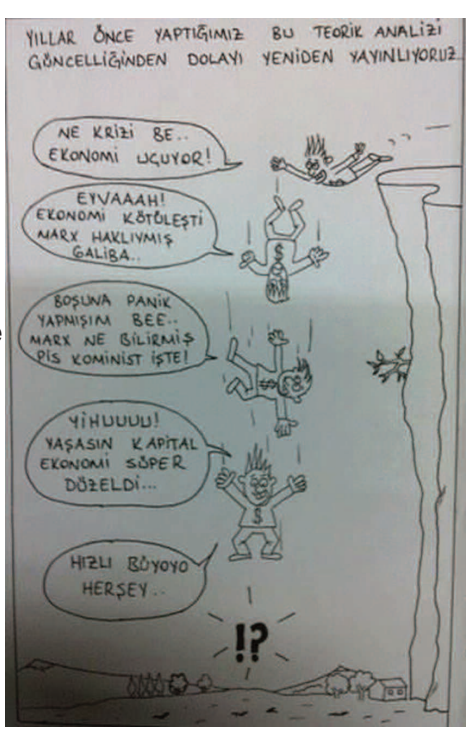 YILLAR ÖNCE YAPTIĞIMIZ BU TEORİK ANALİZİ
GÜNCELLİĞİNDEN DOLAYI YENİDEN YAYINLIYORUZ..
NE KRİZİ BE..
EKONOMİ UÇUYOR!
EYVAAAH!
EKONOMİ KÖTÜLEŞTİ
MARX HAKLIYMIŞ
GALİBA..
BOŞUNA PANİK
YAPMIŞIM BEE..
MARX NE BİLİRMİŞ
PİS KOMİNİST İŞTE!
YİHUUUU!
YAŞASIN KAPİTAL
EKONOMİ SÜPER
DÜZELDİ...
HIZLI BÜYÜYO
HERŞEY..
!?
$
$
$